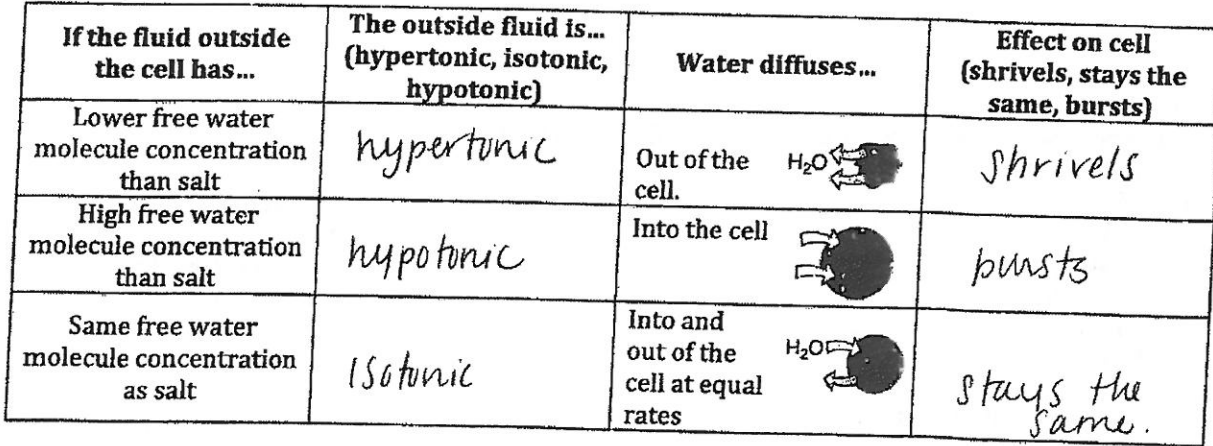 If the fluid outside
the cell has...
The outside fluid is...
(hypertonic, isotonic,
hypotonic)
Water diffuses...
Effect on cell
(shrivels, stays the
same, bursts)
Lower free water
molecule concentration
than salt
hypertonic
Out of the
cell.
H₂O
Shrivels
High free water
molecule concentration
than salt
hypotonic
Into the cell
bursts
Same free water
molecule concentration
as salt
Isotonic
Into and
out of the
cell at equal
rates
H₂O
stays the
same.